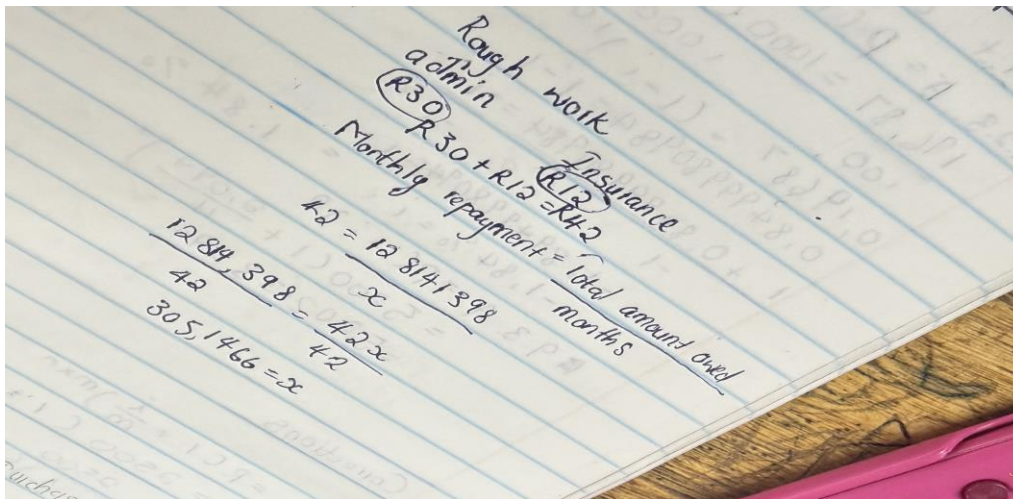 Rough work
admin Insurance
R30 R12
R30 + R12 = R42
Monthly repayment = Total amount owed
months
42 = 12 814,398
x
12 814,398 = 42x
42 42
305,1466 = x